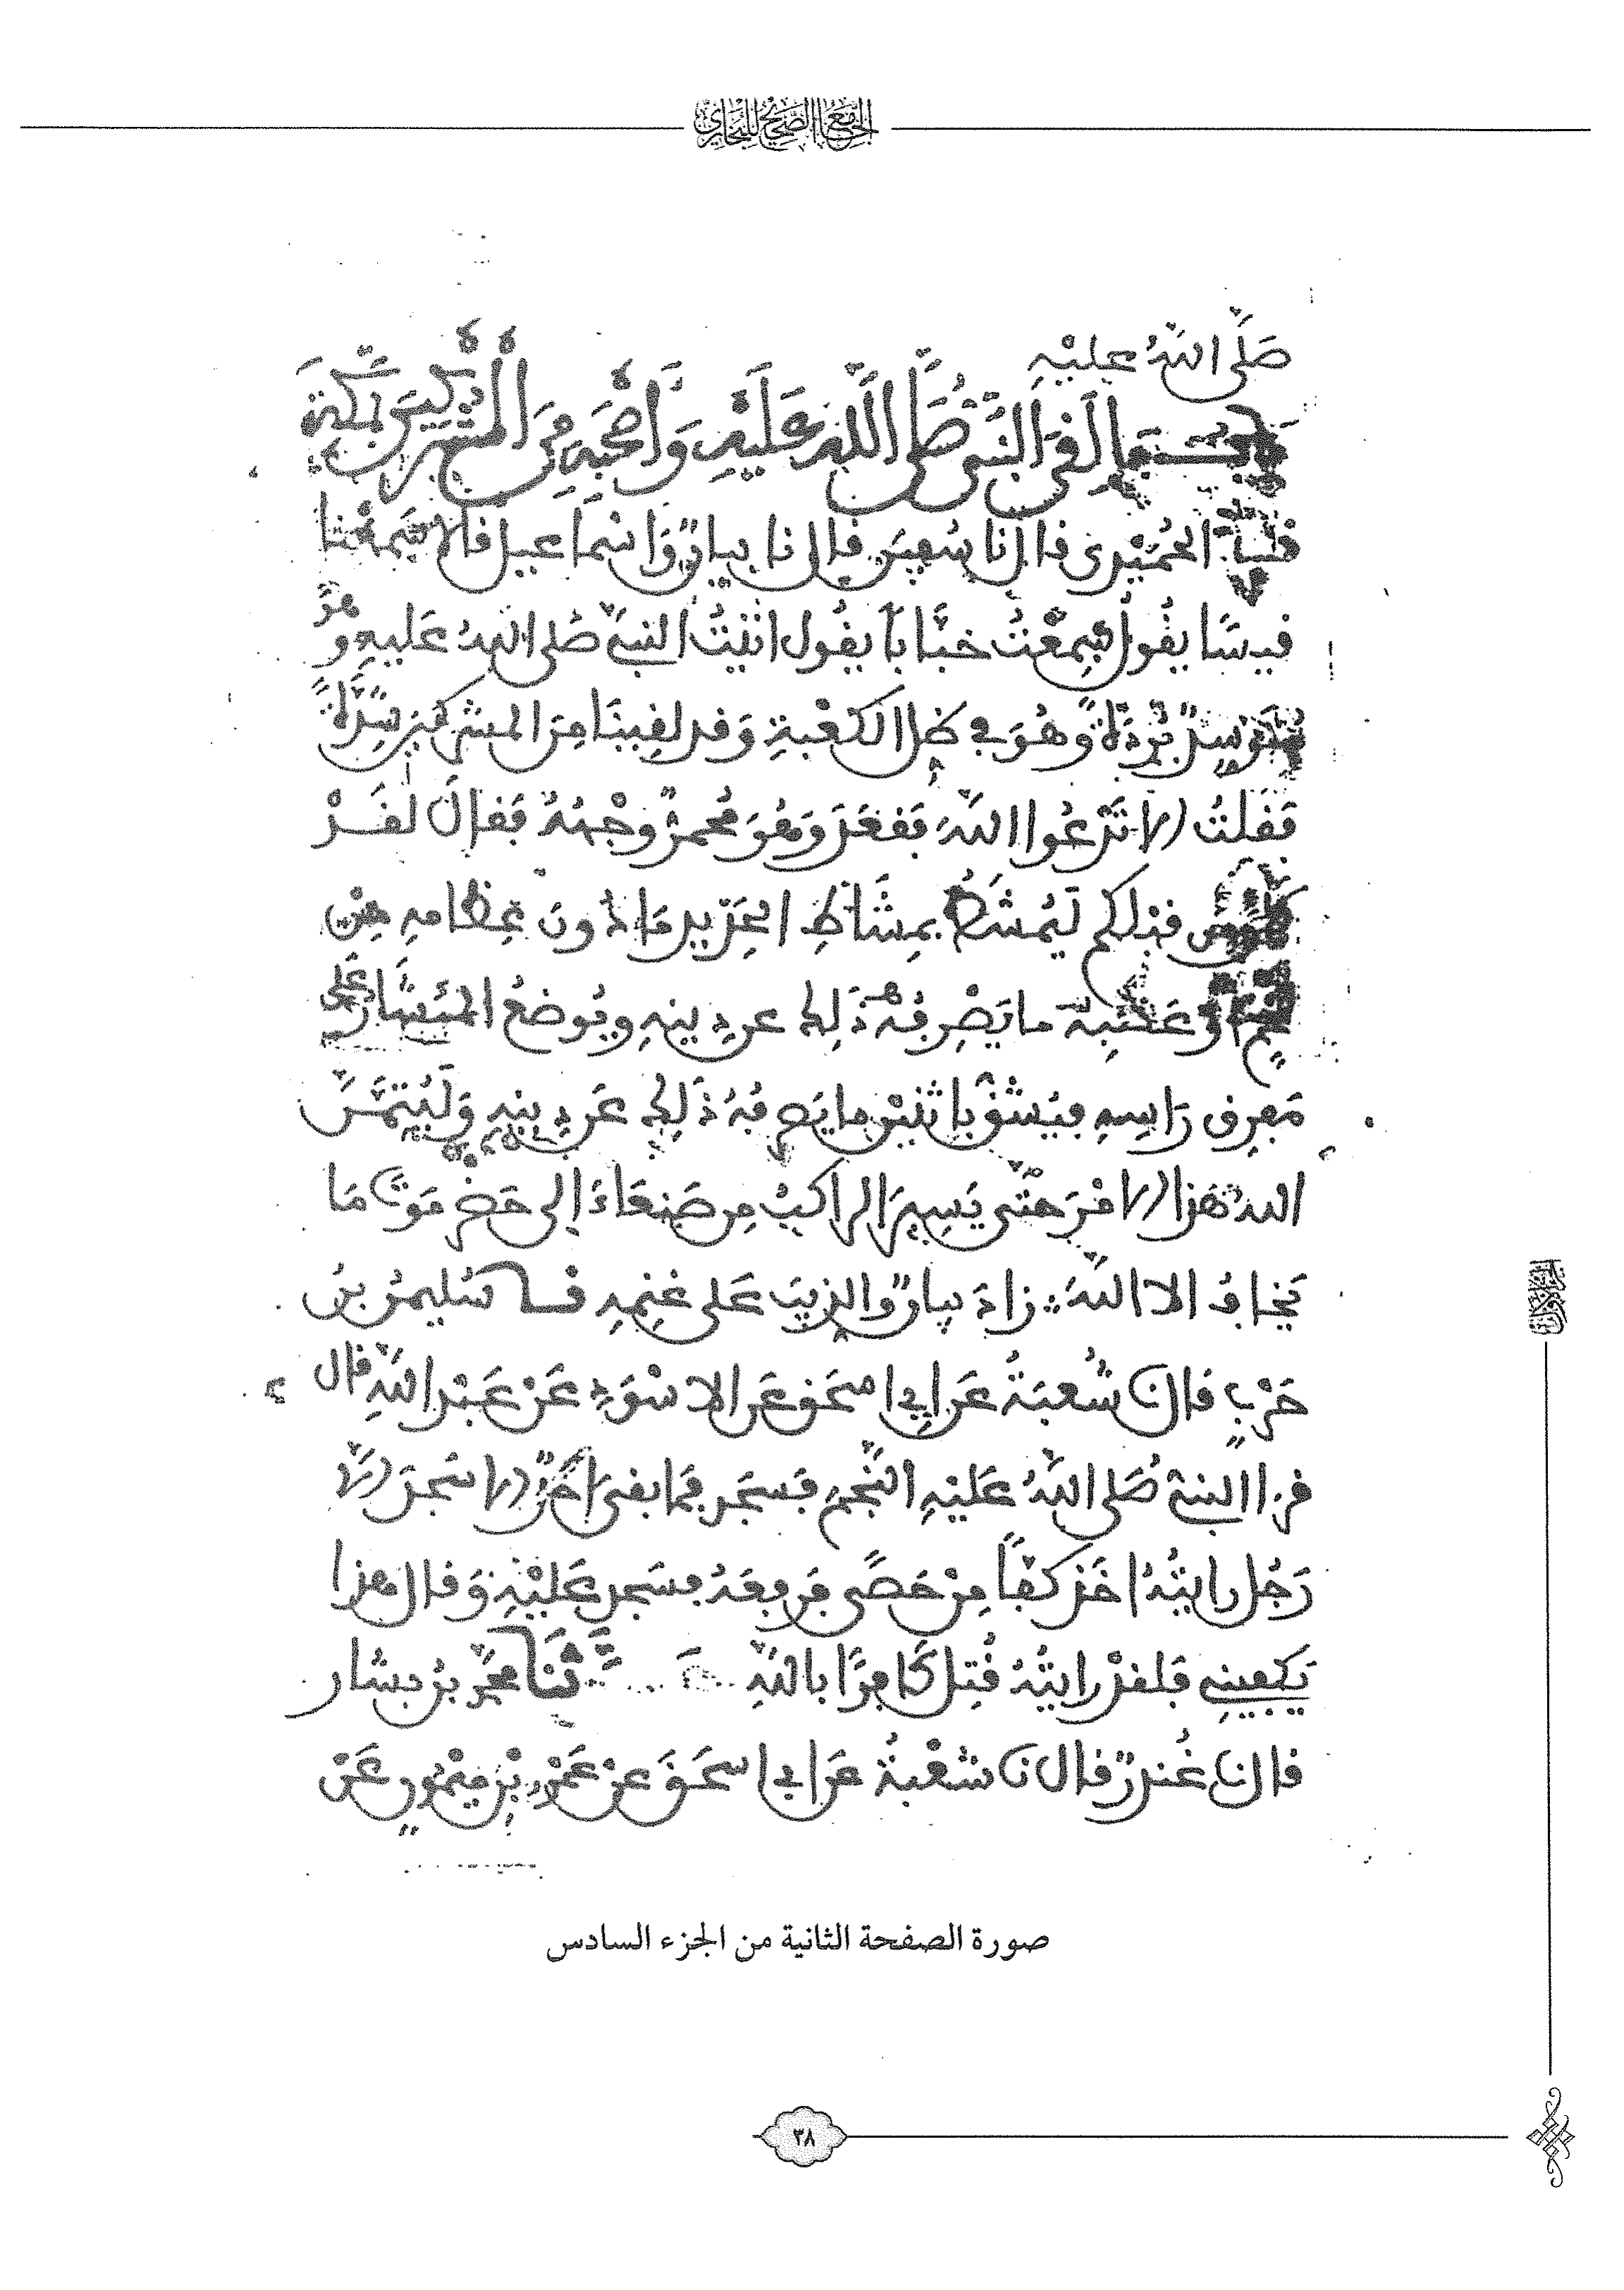 الجامع الصحيح للبخاري
صَلَّى اللهُ عليْهِ
مالقي النبي صَلَّى اللهُ عَلَيْهِ وَأَصْحَبِهِ مِنَ الْمُشْرِكِينَ بِمَكَّةَ
الحُمَيْدِي قال نا سُفيَن قال نا بيانٌ وَاسْمَاعيل قالا سَمِعْنا
قيسًا يقُول سَمِعْتُ خبَّابًا يقُول اتيْتُ النبيّ صَلى اللهُ عَليهِ وهُوَ
مُتَوسدٌ بُرْدَةً وَهُوَ في ظِل الكَعْبةِ وَقد لقِينَا مِنَ المشركين شِدَّةً
فَقلتُ الا تَدْعُوا اللهَ فَقعَدَ وَهُوَ مُحمرٌّ وجْهُهُ فَقالَ لقَدْ
كان من قبلكم لَيُمْشَطُ بمِشَاطِ الحَدِيدِ مَا دُونَ عِظامهِ مِنْ
لحم أو عَصَبٍ ما يَصْرِفُهُ ذَلِكَ عن دِينهِ ويُوضعُ المئشَارُ عَلى
مَفرِق رَاسِهِ فيُشقّ باثنيْن ما يَصرفُهُ ذَلِكَ عَن دِينِهِ وَلَيُتِمَّنَّ
اللهُ هَذا الامْرَ حَتَّى يَسِيرَ الراكبُ مِن صَنعَاءَ إلى حَضرَمَوْتَ مَا
يَخافُ الا اللهَ زادَ بيانٌ والذِيبَ عَلى غنمِهِ نا سُليمنُ بنُ
حَرْبٍ قال نا شُعبَةُ عَن ابي اسحَق عَن الاسْوَدِ عَنْ عَبْدِ اللهِ قال
قرا النبيّ صَلى اللهُ عَليْهِ النَّجْمَ فسَجَد فمَا بقيَ أَحَدٌ الا سَجَدَ الا
رَجُل رايتُهُ اخَذ كَفًّا مِنْ حَصًى فَرفعَهُ فسَجد عَليْهِ وَقال هذا
يَكفِيني فَلقدْ رايتُهُ قُتِل كَافِرًا باللهِ ثنا محمَّدُ بنُ بشار
قال نا غُندرٌ قال نا شُعْبةُ عَن ابي اسحَقَ عنْ عَمْرو بْنِ مَيْمُونٍ عَنْ
صورة الصفحة الثانية من الجزء السادس
٣٨